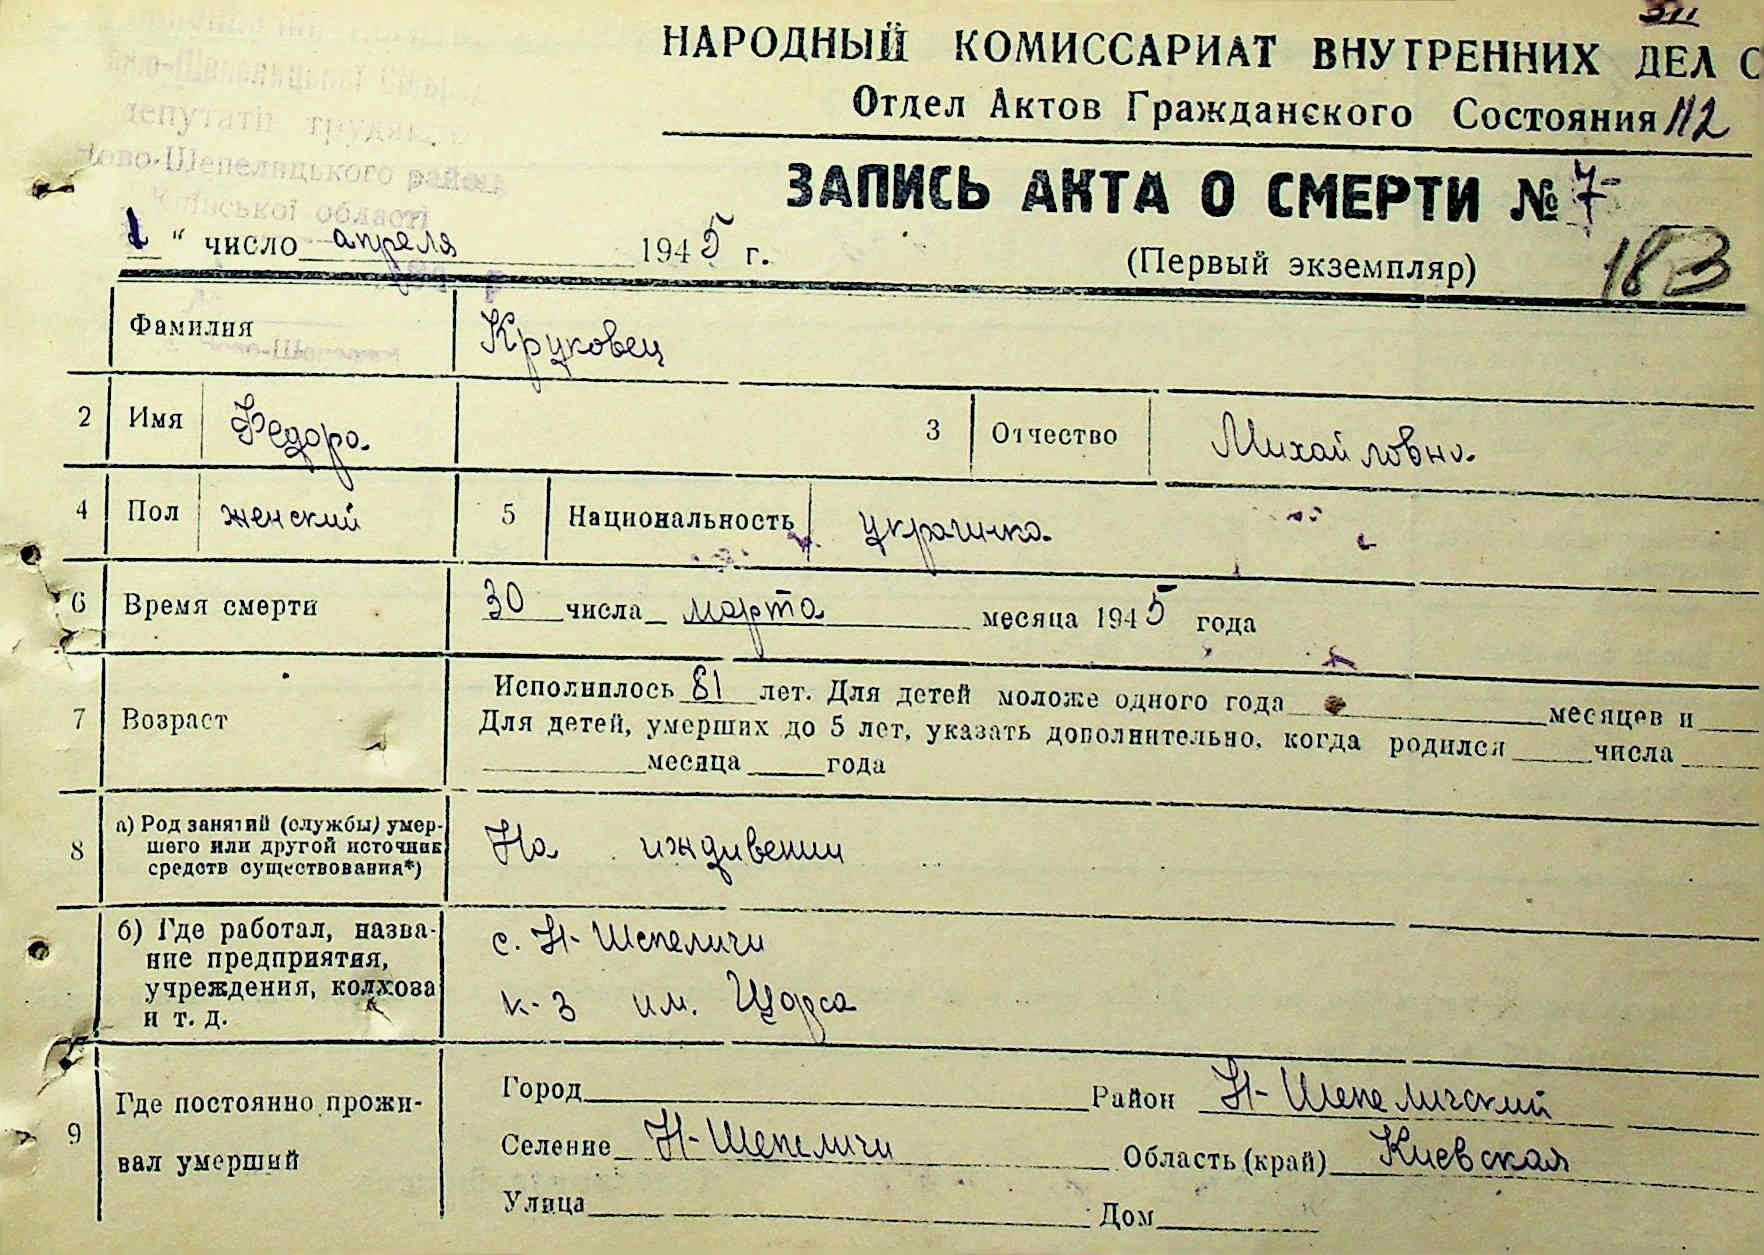 НАРОДНЫЙ КОМИССАРИАТ ВНУТРЕННИХ ДЕЛ С
Отдел Актов Гражданского Состояния 112
ЗАПИСЬ АКТА О СМЕРТИ № 7
депутатів трудящ
Ново-Шепелицького району
Київської області
1 " число апреля 1945 г.
(Первый экземпляр)
183
Фамилия Круковец
2 Имя Федора 3 Отчество Михайловна
4 Пол женский 5 Национальность украинка
6 Время смерти 30 числа марта месяца 1945 года
7 Возраст
Исполнилось 81 лет. Для детей моложе одного года месяцев и
Для детей, умерших до 5 лет, указать дополнительно, когда родился числа
месяца года
8 а) Род занятий (службы) умер-
шего или другой источник
средств существования*)
На иждивении
б) Где работал, назва-
ние предприятия,
учреждения, колхоза
и т. д.
с. Н-Шепеличи
к-з им. Щорса
9 Где постоянно прожи-
вал умерший
Город Район Н-Шепеличский
Селение Н-Шепеличи Область (край) Киевская
Улица Дом